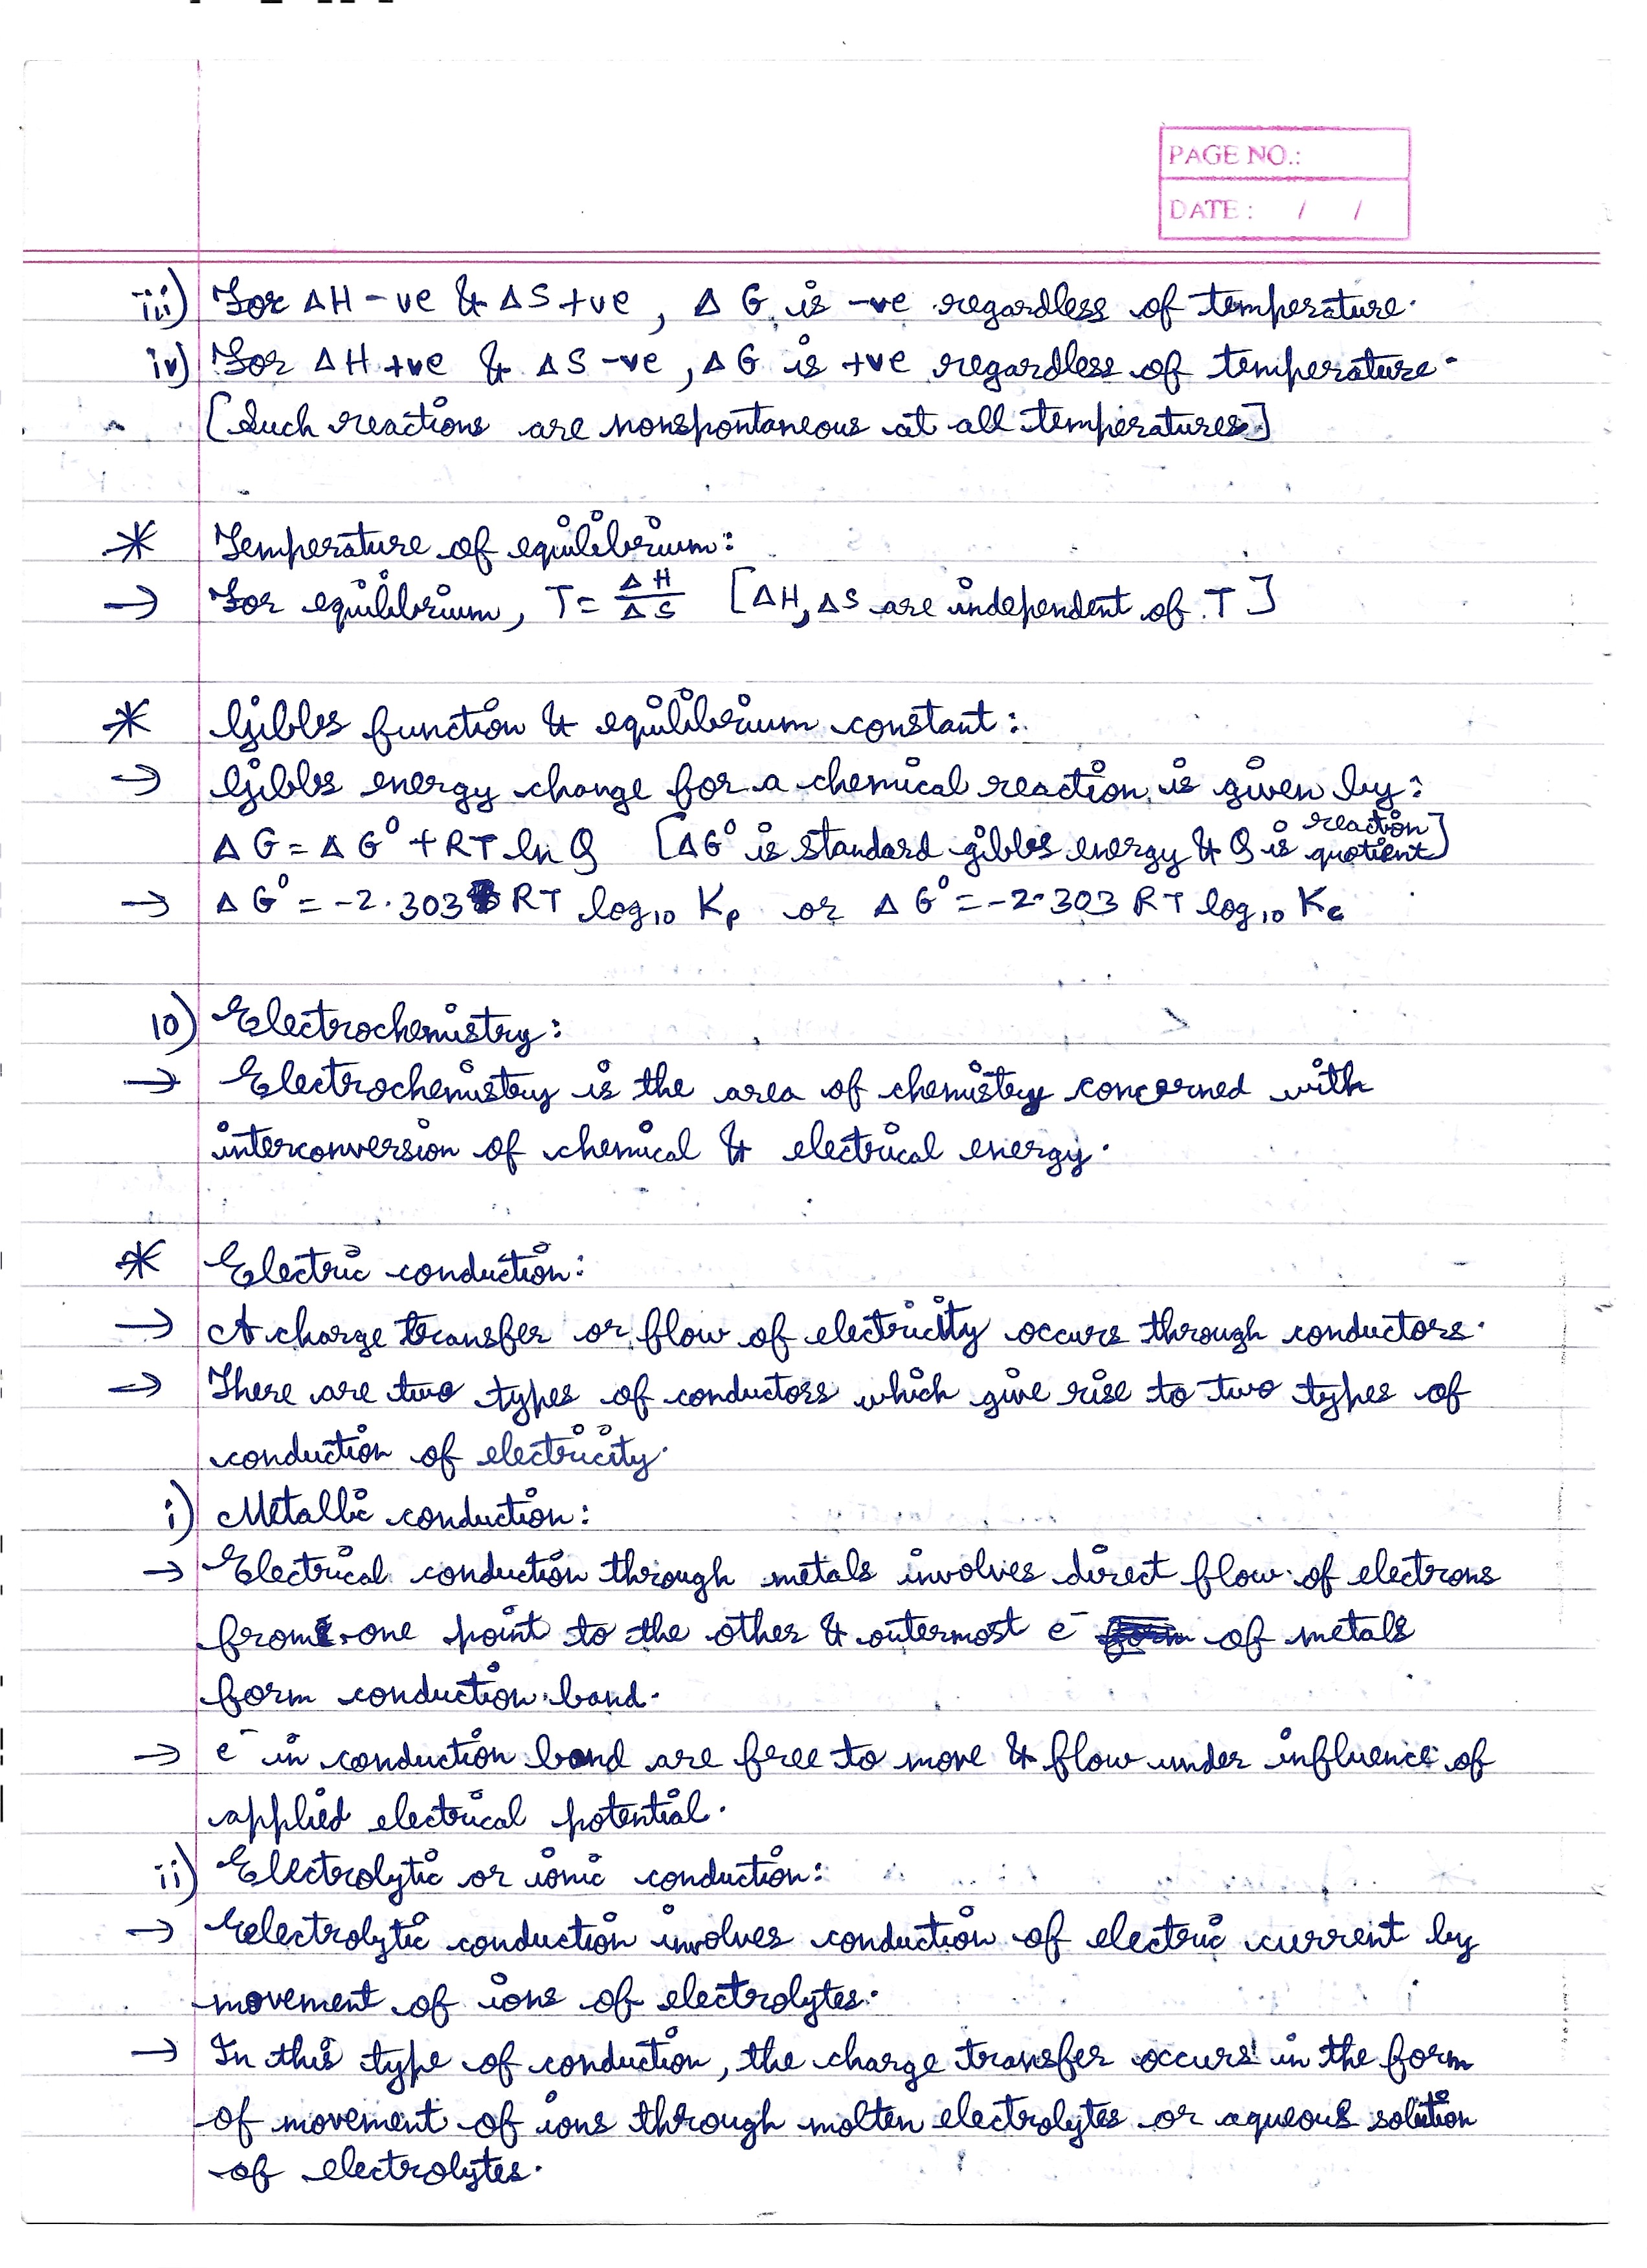 PAGE NO.:
DATE: / /
iii) For ΔH -ve & ΔS +ve, ΔG is -ve regardless of temperature.
iv) For ΔH +ve & ΔS -ve, ΔG is +ve regardless of temperature.
[Such reactions are nonspontaneous at all temperatures]
* Temperature of equilibrium:
→ For equilibrium, T = ΔH/ΔS [ΔH, ΔS are independent of T]
* Gibbs function & equilibrium constant:
→ Gibbs energy change for a chemical reaction is given by:
ΔG = ΔG° + RT ln Q [ΔG° is standard gibbs energy & Q is reaction quotient]
→ ΔG° = -2.303 RT log₁₀ Kp or ΔG° = -2.303 RT log₁₀ Kc
10) Electrochemistry:
→ Electrochemistry is the area of chemistry concerned with
interconversion of chemical & electrical energy.
* Electric conduction:
→ A charge transfer or flow of electricity occurs through conductors.
→ There are two types of conductors which give rise to two types of
conduction of electricity.
i) Metallic conduction:
→ Electrical conduction through metals involves direct flow of electrons
from one point to the other & outermost e⁻ of metals
form conduction band.
→ e⁻ in conduction band are free to move & flow under influence of
applied electrical potential.
ii) Electrolytic or ionic conduction:
→ Eelectrolytic conduction involves conduction of electric current by
movement of ions of electrolytes.
→ In this type of conduction, the charge transfer occurs in the form
of movement of ions through molten electrolytes or aqueous solution
of electrolytes.